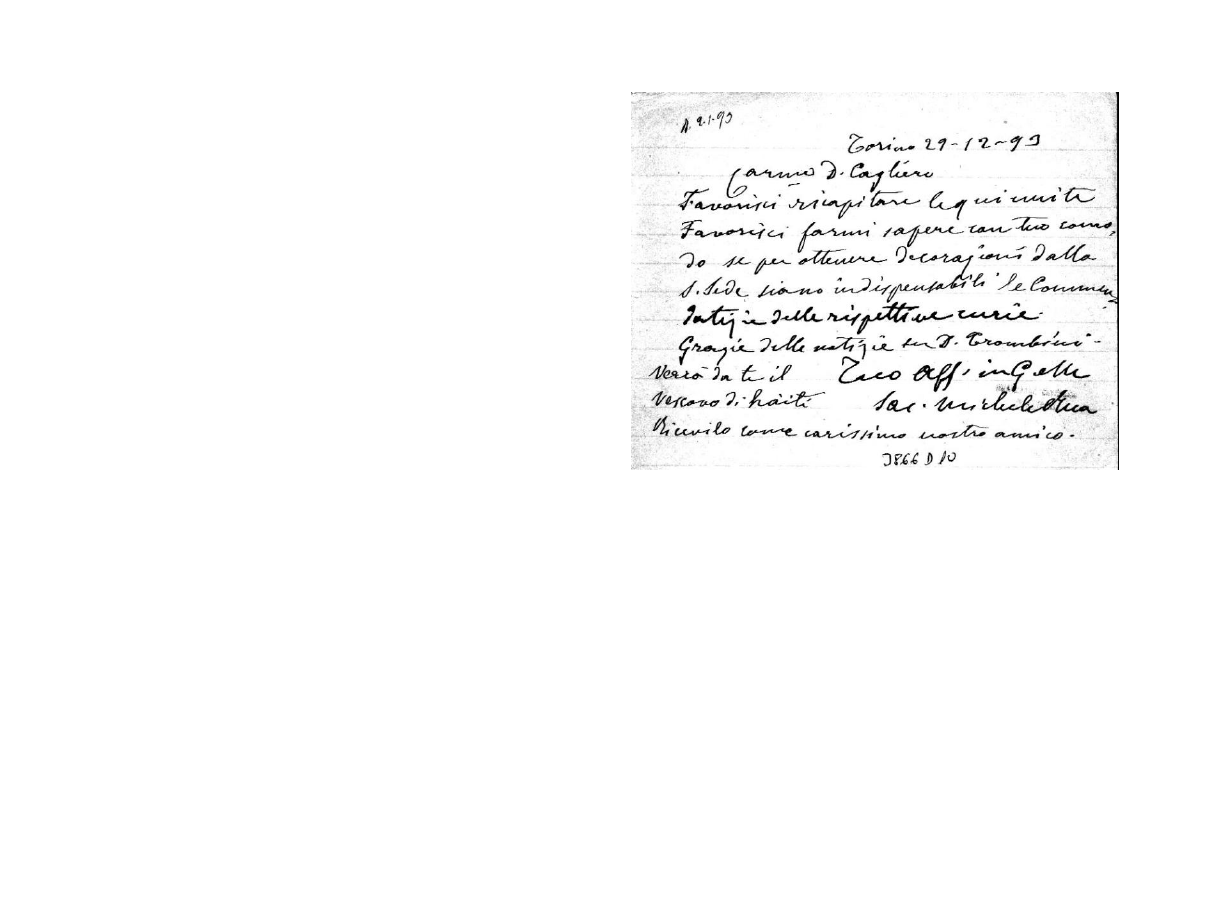 R. 2-1-93
Torino 29-12-93
Carmo D. Cagliero
Favorisci ricapitare le qui unite
Favorisci farmi sapere con tuo como,
do se per ottenere decorazioni dalla
S. Sede siano indispensabili le Commen,
datizie delle rispettive curie.
Grazie delle notizie su D. Trombini -
Verrà da te il Tuo Aff. in G e M
Vescovo di haiti Sac. Michele Rua
Ricevilo come carissimo nostro amico.
3866 D 10